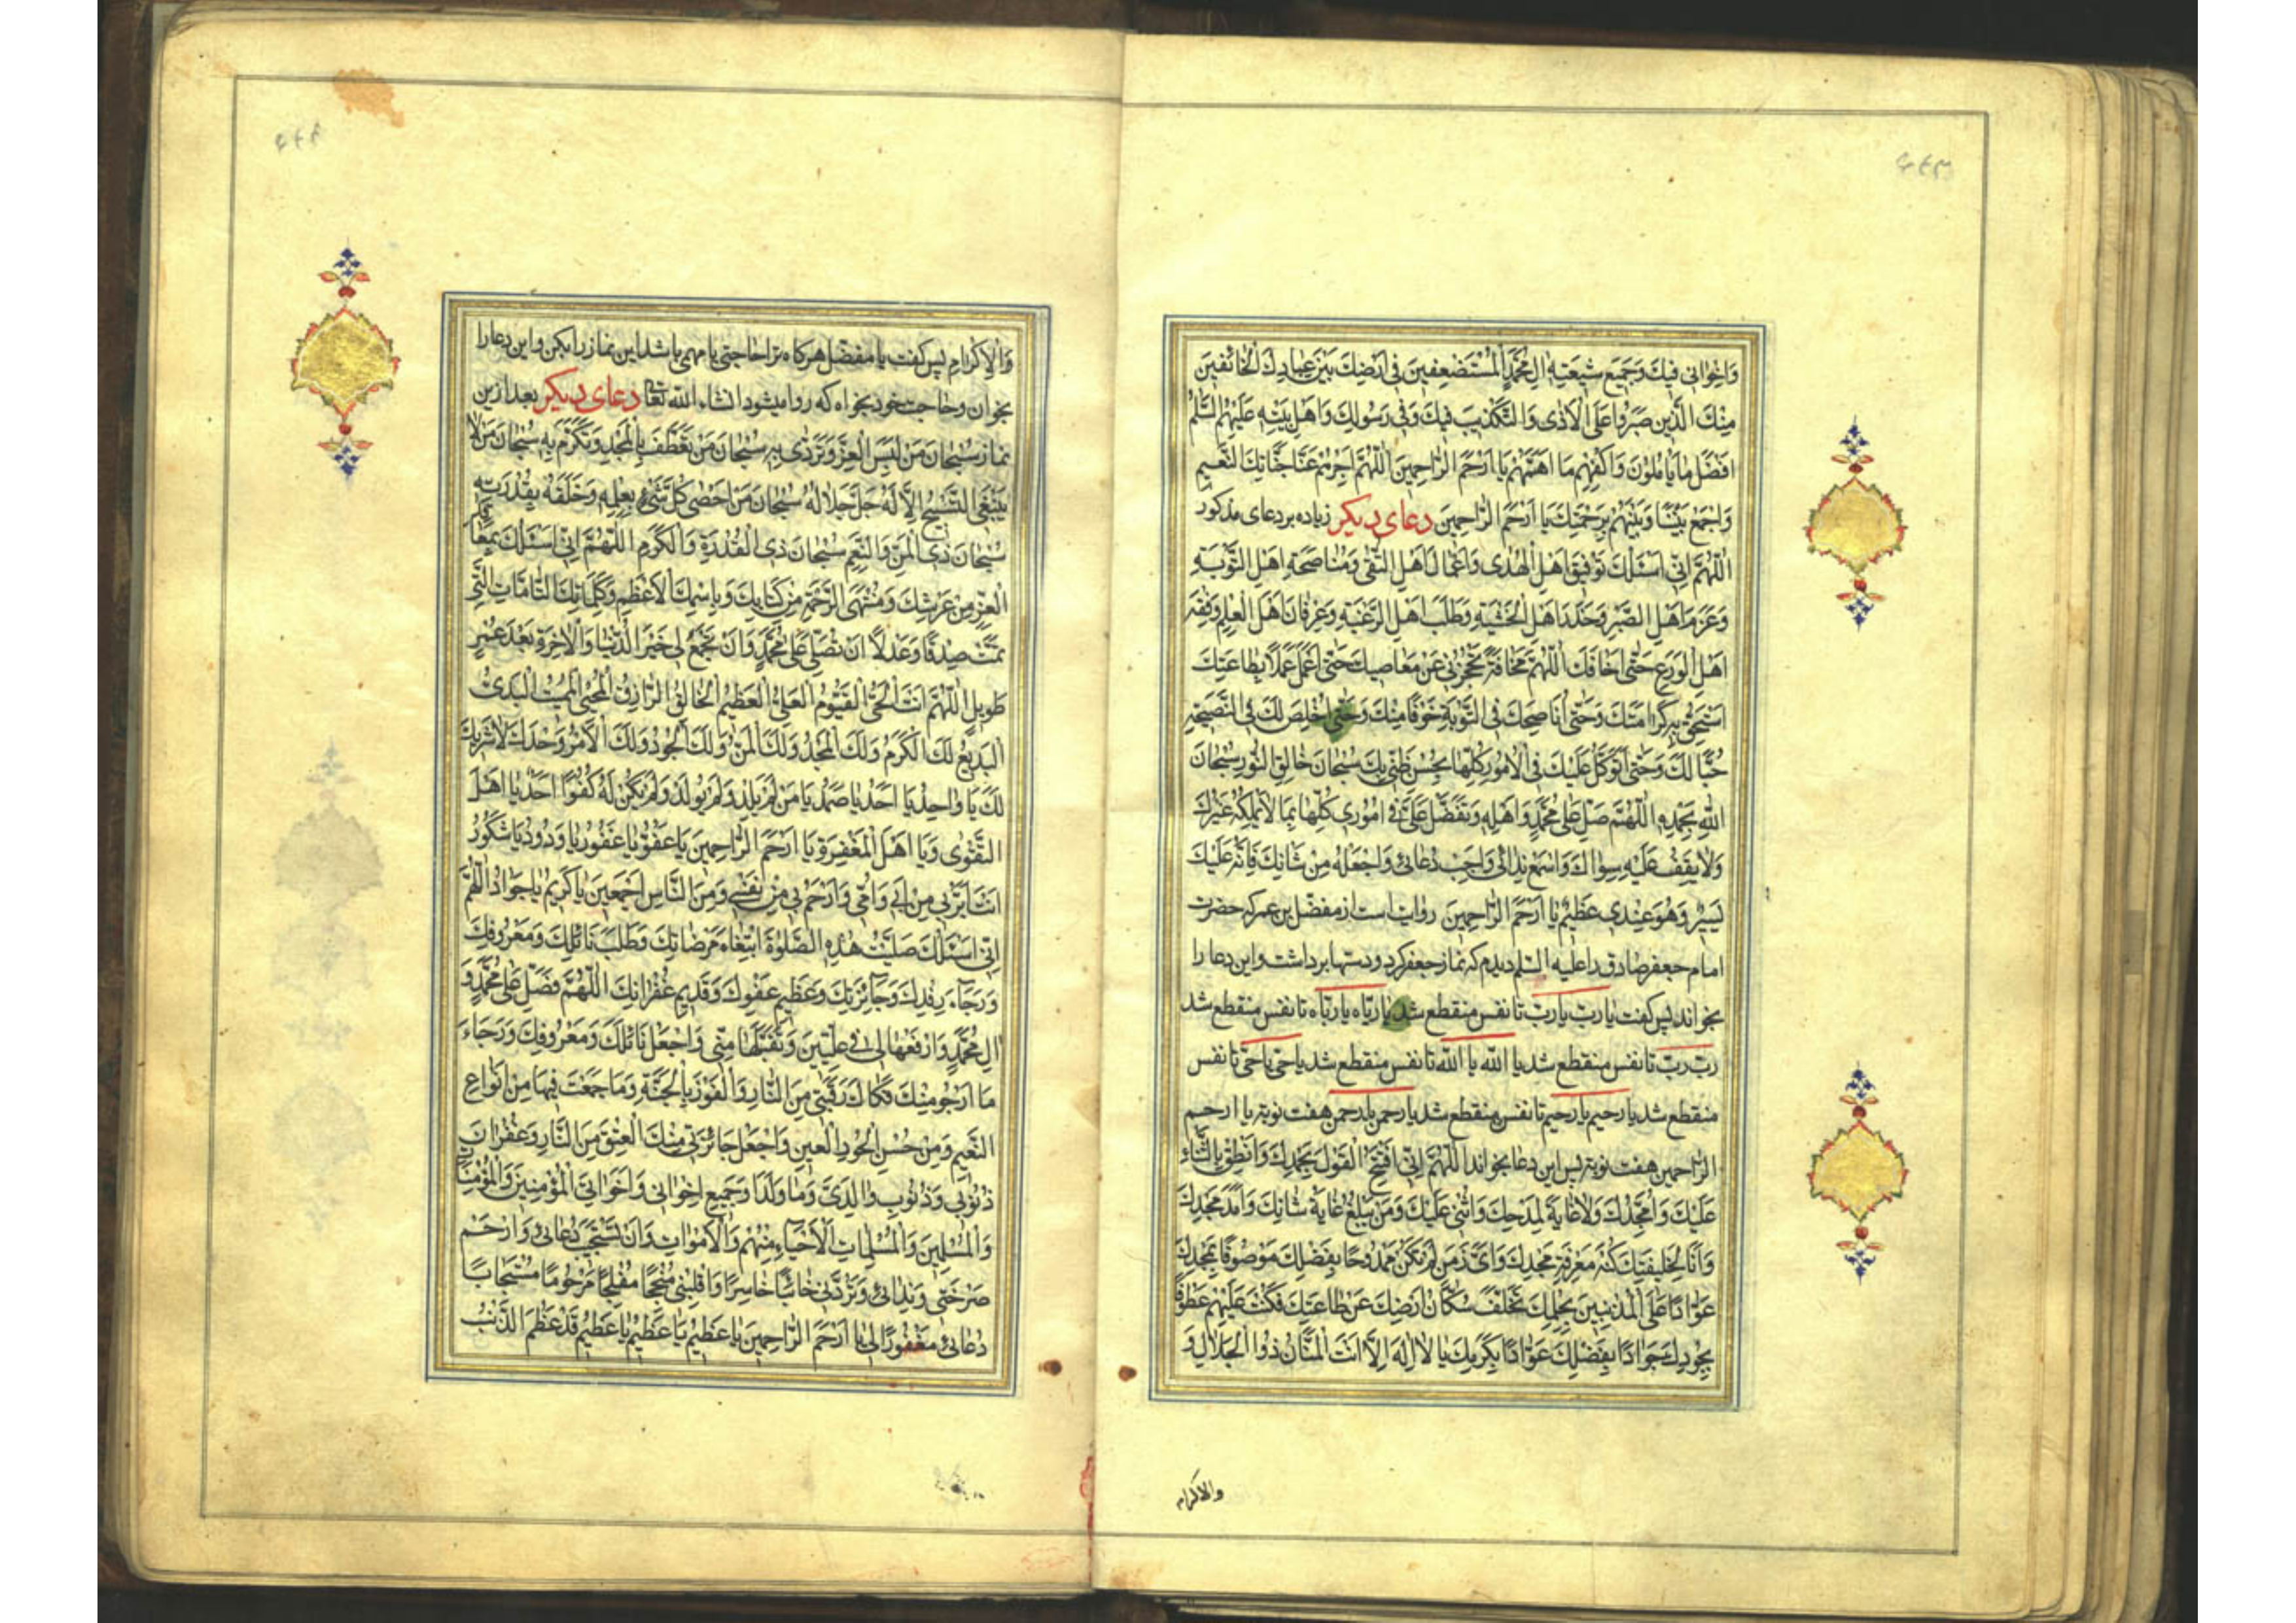 ۴۴۳
وَاِخْوانی فیكَ وَجَمیعِ شیعَتِهِ الِ مُحَمَّدٍ الْمُسْتَضْعَفینَ فی اَرْضِكَ بَیْنَ عِبادِكَ الْخائِفینَ
مِنْكَ الَّذینَ صَبَرُوا عَلَی الْاَذی وَالتَّكْذیبِ فیكَ وَفی رَسُولِكَ وَاَهْلِ بَیْتِهِ عَلَیْهِمُ السَّلَمُ
اَفْضَلَ ما یَامُلُونَ وَاكْفِهِمْ ما اَهَمَّهُمْ یا اَرْحَمَ الرّاحِمینَ اَللّهُمَّ اجْزِهِمْ عَنّا جَنّاتِكَ النَّعیمِ
وَاجْمَعْ بَیْنَنا وَبَیْنَهُمْ بِرَحْمَتِكَ یا اَرْحَمَ الرّاحِمینَ دعای دیكر زیاده بر دعای مذكور
اَللّهُمَّ اِنّی اَسْئَلُكَ تَوْفیقَ اَهْلِ الْهُدی وَاَعْمالَ اَهْلِ التُّقی وَمُناصَحَةَ اَهْلِ التَّوْبَةِ
وَعَزْمَ اَهْلِ الصَّبْرِ وَحَذَرَ اَهْلِ الْخَشْیَةِ وَطَلَبَ اَهْلِ الرَّغْبَةِ وَعِرْفانَ اَهْلِ الْعِلْمِ وَفِقْهَ
اَهْلِ الْوَرَعِ حَتّی اَخافَكَ اَللّهُمَّ مَخافَةً تَحْجُزُنی عَنْ مَعاصیكَ حَتّی اَعْمَلَ عَمَلًا بِطاعَتِكَ
اَسْتَحِقُّ بِهِ كَرامَتَكَ وَحَتّی اُناصِحَكَ فی التَّوْبَةِ خَوْفًا مِنْكَ وَحَتّی اُخْلِصَ لَكَ فی النَّصیحَةِ
حُبًّا لَكَ وَحَتّی اَتَوَكَّلَ عَلَیْكَ فی الْاُمُورِ كُلِّها بِحُسْنِ ظَنّی بِكَ سُبْحانَ خالِقِ النُّورِ سُبْحانَ
اللّهِ بِحَمْدِهِ اَللّهُمَّ صَلِّ عَلی مُحَمَّدٍ وَاهْلِهِ وَتَفَضَّلْ عَلَیَّ فی اُمُوری كُلِّها بِما لا یَمْلِكُهُ غَیْرُكَ
وَلا یَقِفُ عَلَیْهِ سِواكَ وَاسْمَعْ نِدائی وَاَجِبْ دُعائی وَاجْعَلْهُ مِنْ شَانِكَ فَاِنَّهُ عَلَیْكَ
یَسیرٌ وَهُوَ عِنْدی عَظیمٌ یا اَرْحَمَ الرّاحِمینَ روایت است از مفضل بن عمر كه حضرت
امام جعفر صادق را علیه السّلم دیدم كه نماز جعفر كرد و دستها برداشت و این دعا را
بخواند پس كفت یا ربّ یا ربّ تا نفس منقطع شد یا ربّاه یا ربّاه تا نفس منقطع شد
ربّ ربّ تا نفس منقطع شد یا الله یا الله تا نفس منقطع شد یا حیّ یا حیّ تا نفس
منقطع شد یا رحیم یا رحیم تا نفس منقطع شد یا رحمن یا رحمن هفت نوبة یا ارحم
الرّاحمین هفت نوبة پس این دعا بخواند اَللّهُمَّ اِنّی اَفْتَتِحُ الْقَوْلَ بِحَمْدِكَ وَاَنْطِقُ بِالثَّناءِ
عَلَیْكَ وَاُمَجِّدُكَ وَلا غایَةَ لِمَدْحِكَ وَاُثْنی عَلَیْكَ وَمَنْ یَبْلُغُ غایَةَ ثَنائِكَ وَاَمَدَ مَجْدِكَ
وَاَنّا لِخَلیقَتِكَ كُنْهُ مَعْرِفَةِ مَجْدِكَ وَاَیَّ زَمَنٍ لَمْ تَكُنْ مَمْدُوحًا بِفَضْلِكَ مَوْصُوفًا بِمَجْدِكَ
عَوّادًا عَلَی الْمُذْنِبینَ بِحِلْمِكَ تَخَلَّفَ سُكّانُ اَرْضِكَ عَنْ طاعَتِكَ فَكُنْتَ عَلَیْهِمْ عَطُوفًا
بِجُودِكَ جَوادًا بِفَضْلِكَ عَوّادًا بِكَرَمِكَ یا لا اِلهَ اِلّا اَنْتَ الْمَنّانُ ذُوا الْجَلالِ وَ
والاكرام
۴۴۴
وَالْاِكْرامِ پس كفت یا مفضل هركاه ترا حاجتی یا مهمی باشد این نماز را بكن و این دعا را
بخوان و حاجت خود بخواه كه روا میشود انشاء الله تعا دعای دیكر بعد ازین
نماز سُبْحانَ مَنْ لَبِسَ الْعِزَّ وَتَرَدّی بِهِ سُبْحانَ مَنْ تَعَطَّفَ بِالْمَجْدِ وَتَكَرَّمَ بِهِ سُبْحانَ مَنْ لا
یَنْبَغی التَّسْبیحُ اِلّا لَهُ جَلَّ جَلالُهُ سُبْحانَ مَنْ اَحْصی كُلَّ شَیْءٍ بِعِلْمِهِ وَخَلَقَهُ بِقُدْرَتِهِ
سُبْحانَ ذی الْمَنِّ وَالنِّعَمِ سُبْحانَ ذی الْقُدْرَةِ وَالْكَرَمِ اَللّهُمَّ اِنّی اَسْئَلُكَ بِمَعاقِدِ
الْعِزِّ مِنْ عَرْشِكَ وَمُنْتَهَی الرَّحْمَةِ مِنْ كِتابِكَ وَبِاسْمِكَ الْاَعْظَمِ وَكَلِماتِكَ التّامّاتِ الَّتی
تَمَّتْ صِدْقًا وَعَدْلًا اَنْ تُصَلِّیَ عَلی مُحَمَّدٍ وَاَنْ تَجْمَعَ لی خَیْرَ الدُّنْیا وَالْاخِرَةِ بَعْدَ عُمْرٍ
طَویلٍ اَللّهُمَّ اَنْتَ الْحَیُّ الْقَیُّومُ الْعَلِیُّ الْعَظیمُ الْخالِقُ الرّازِقُ الْمُحْیی الْمُمیتُ الْبَدیءُ
الْبَدیعُ لَكَ الْكَرَمُ وَلَكَ الْمَجْدُ وَلَكَ الْمَنُّ وَلَكَ الْجُودُ وَلَكَ الْاَمْرُ وَحْدَكَ لا شَریكَ
لَكَ یا واحِدُ یا اَحَدُ یا صَمَدُ یا مَنْ لَمْ یَلِدْ وَلَمْ یُولَدْ وَلَمْ یَكُنْ لَهُ كُفُوًا اَحَدٌ یا اَهْلَ
التَّقْوی وَیا اَهْلَ الْمَغْفِرَةِ یا اَرْحَمَ الرّاحِمینَ یا عَفُوُّ یا غَفُورُ یا وَدُودُ یا شَكُورُ
اَنْتَ اَبَرُّ بی مِنْ اَبی وَاُمّی وَاَرْحَمُ بی مِنْ نَفْسی وَمِنَ النّاسِ اَجْمَعینَ یا كَریمُ یا جَوادُ اَللّهُمَّ
اِنّی اَسْئَلُكَ صَلَّیْتُ هذِهِ الصَّلوةَ ابْتِغاءَ مَرْضاتِكَ وَطَلَبَ نائِلِكَ وَمَعْرُوفِكَ
وَرَجاءَ رِفْدِكَ وَجائِزَتِكَ وَعَظیمِ عَفْوِكَ وَقَدیمِ غُفْرانِكَ اَللّهُمَّ فَصَلِّ عَلی مُحَمَّدٍ وَ
الِ مُحَمَّدٍ وَارْفَعْها لی فی عِلِّیّینَ وَتَقَبَّلْها مِنّی وَاجْعَلْ نائِلَكَ وَمَعْرُوفَكَ وَرَجاءَ
ما اَرْجُو مِنْكَ فَكاكَ رَقَبَتی مِنَ النّارِ وَالْفَوْزَ بِالْجَنَّةِ وَما جَمَعْتَ فیها مِنْ اَنْواعِ
النَّعیمِ وَمِنْ حُسْنِ الْحُورِ الْعینِ وَاجْعَلْ جائِزَتی مِنْكَ الْعِتْقَ مِنَ النّارِ وَغُفْرانَ
ذُنُوبی وَذُنُوبِ والِدَیَّ وَما وَلَدا وَجَمیعِ اِخْوانی وَاَخَواتِیَ الْمُؤْمِنینَ وَالْمُؤْمِناتِ
وَالْمُسْلِمینَ وَالْمُسْلِماتِ الْاَحْیاءِ مِنْهُمْ وَالْاَمْواتِ وَاَنْ تَسْتَجیبَ دُعائی وَارْحَمْ
صَرْخَتی وَنِدائی وَتَرُدَّنی خائِبًا خاسِرًا وَاقْلِبْنی مُنْجِحًا مُفْلِحًا مَرْحُومًا مُسْتَجابًا
دُعائی مَغْفُورًا لی یا اَرْحَمَ الرّاحِمینَ یا عَظیمُ یا عَظیمُ یا عَظیمُ قَدْ عَظُمَ الذَّنْبُ